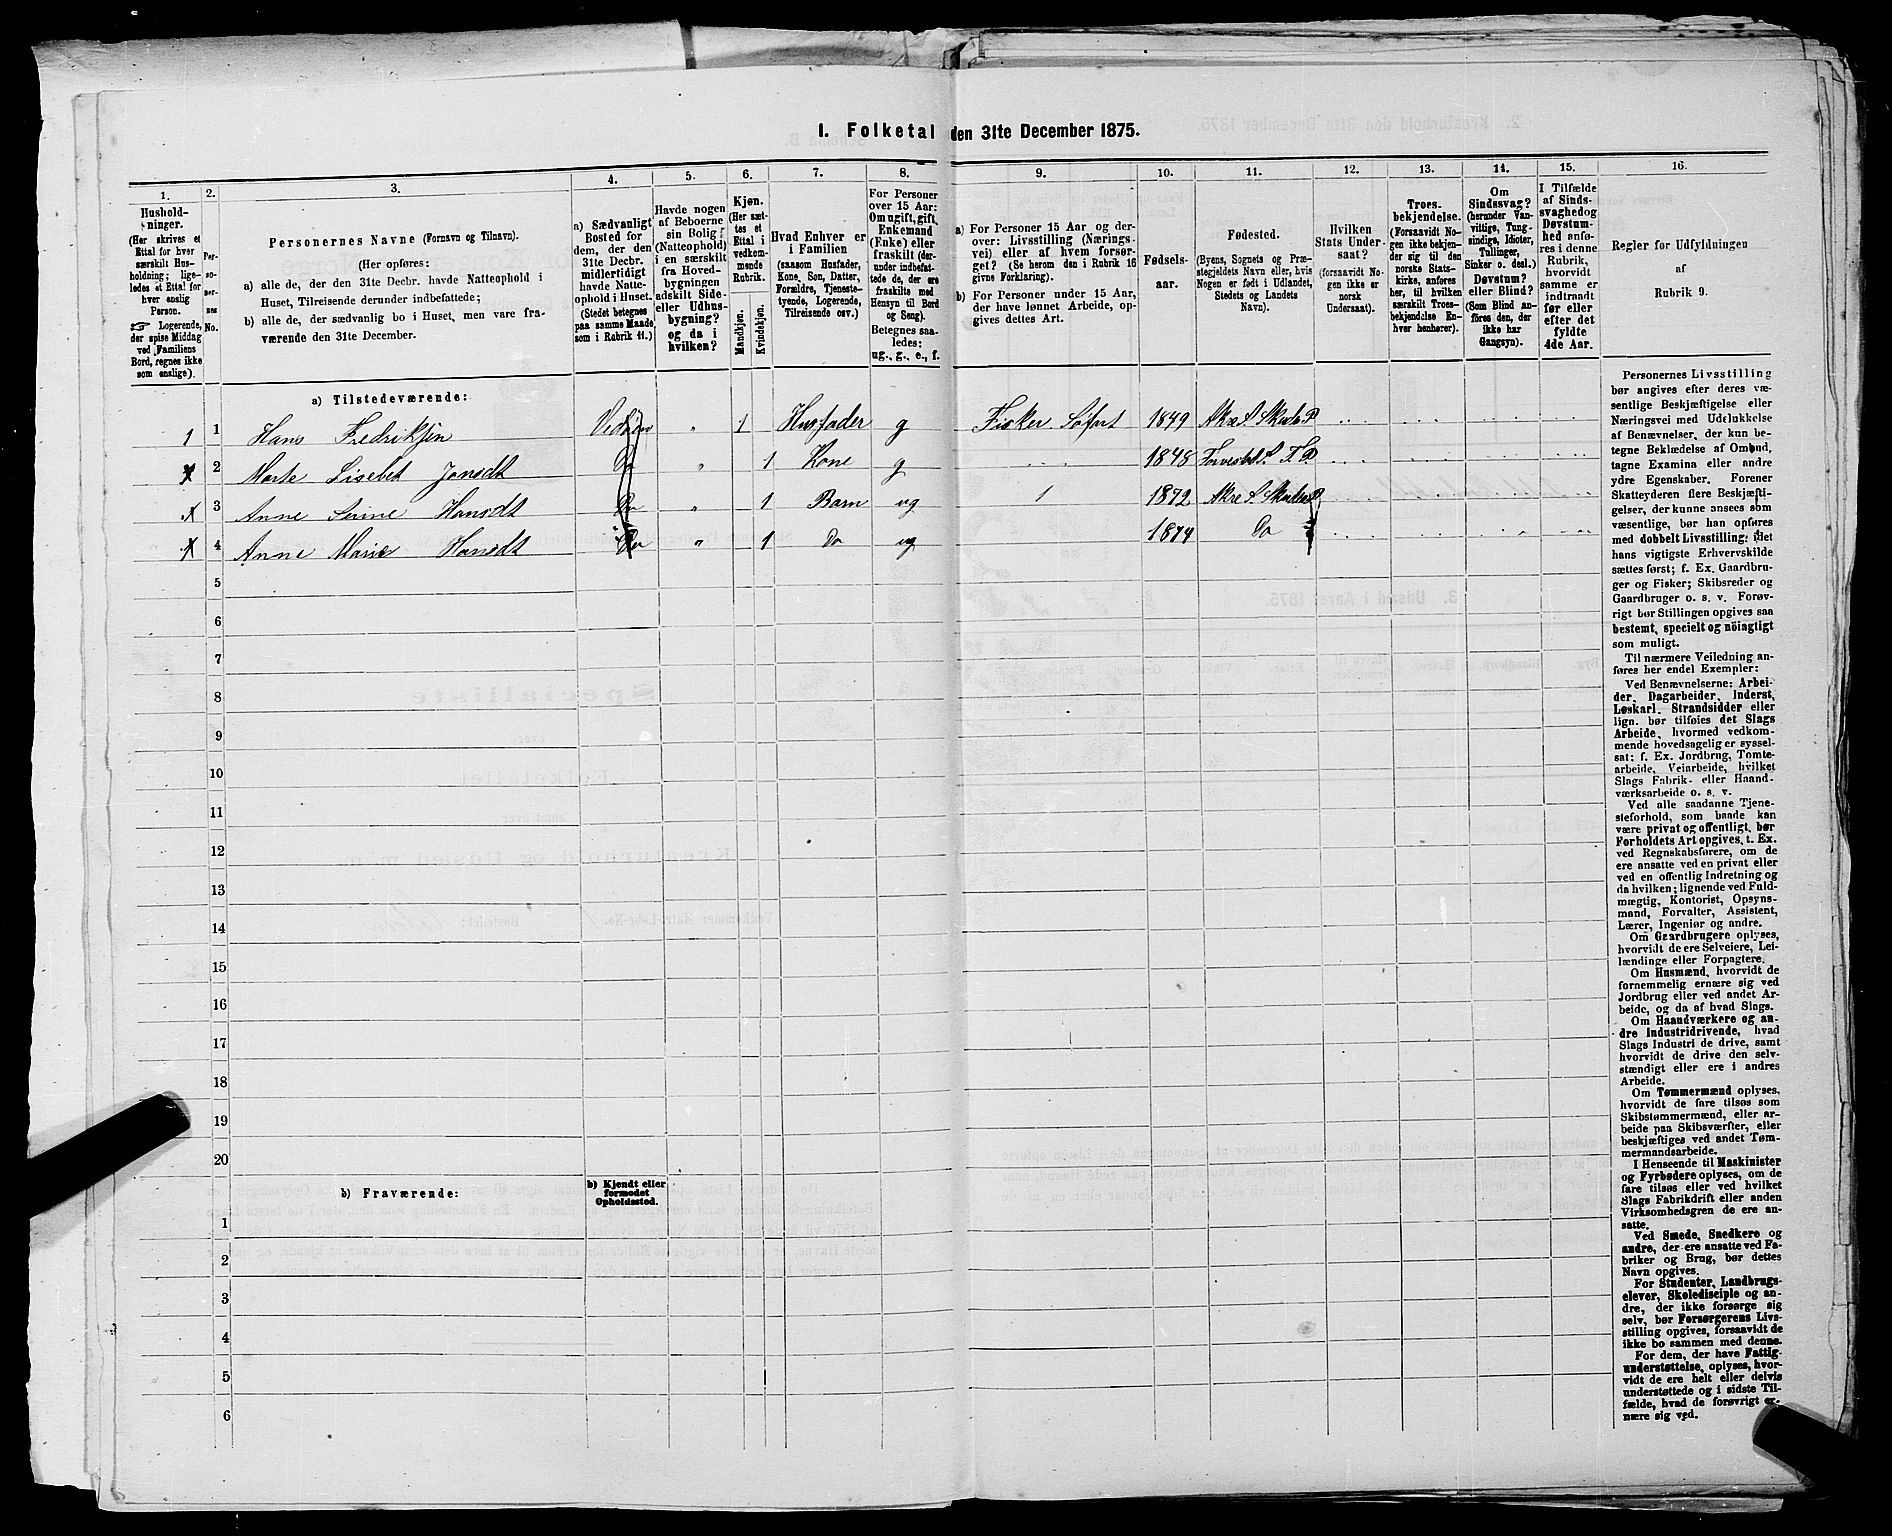 I. Folketal den 31te December 1875.
1.
Hushold-
ninger.
(Her skrives et
Ettal for hver
særskilt Hus-
holdning; lige-
ledes et Ettal for
hver enslig
Person.
Logerende,
der spise Middag
ved Familiens
Bord, regnes ikke
som enslige).
2.
Per-
so-
ner-
nes
No.
3.
Personernes Navne (Fornavn og Tilnavn).
(Her opføres:
a) alle de, der den 31te Decbr. havde Natteophold i
Huset, Tilreisende derunder indbefattede;
b) alle de, der sædvanlig bo i Huset, men vare fra-
værende den 31te December.
4.
a) Sædvanligt
Bosted for
dem, der den
31te Decbr.
midlertidigt
havde Natte-
ophold i Huset.
(Stedet betegnes
paa samme Maade
som i Rubrik 11.)
5.
Havde nogen
af Beboerne
sin Bolig
(Natteophold)
i en særskilt
fra Hoved-
bygningen
adskilt Side-
eller Udhus-
bygning?
og da i
hvilken?
6.
Kjøn.
(Her sæt-
tes et
Ettal i
vedkom-
mende
Rubrik.
Mandkjøn.
Kvindekjøn.
7.
Hvad Enhver er
i Familien
(saasom Husfader,
Kone, Søn, Datter,
Forældre, Tjeneste-
tyende, Logerende,
Tilreisende osv.)
8.
For Personer
over 15 Aar:
Om ugift, gift,
Enkemand
(Enke) eller
fraskilt (der-
under indbefat-
tede de, der ere
fraskilte med
Hensyn til Bord
og Seng).
Betegnes saa-
ledes:
ug., g., e., f.
9.
a) For Personer 15 Aar og der-
over: Livsstilling (Nærings-
vei) eller af hvem forsør-
get? (Se herom den i Rubrik 16
givne Forklaring).
b) For Personer under 15 Aar,
der have lønnet Arbeide, op-
gives dettes Art.
10.
Fødsels-
aar.
11.
Fødested.
(Byens, Sognets og Præ-
stegjeldets Navn eller, hvis
Nogen er født i Udlandet,
Stedets og Landets
Navn).
12.
Hvilken
Stats Under-
saat?
(forsaavidt No-
gen ikke er
norsk
Undersaat).
13.
Troes-
bekjendelse.
(Forsaavidt No-
gen ikke bekjen-
der sig til den
norske Stats-
kirke, anføres
her, til hvilken
særskilt Troes-
bekjendelse En-
hver henhører).
14.
Om
Sindssvag?
(herunder Van-
vittige, Tung-
sindige, Idioter,
Tullinger,
Sinker o. desl.)
Døvstum?
eller Blind?
(Som Blind an-
føres den, der
ikke har
Gangsyn).
15.
I Tilfælde
af Sinds-
svaghed og
Døvstum-
hed anfø-
res i denne
Rubrik,
hvorvidt
samme er
indtraadt
før eller
efter det
fyldte
4de Aar.
16.
Regler for Udfyldningen
af
Rubrik 9.
a) Tilstedeværende:
1 1 Hans Fredriksen Vedøen " 1 Husfader g Fisker 1849 Akre S. Skude P
2 Marte Lisebet Jonsdt Do " 1 Kone g 1848 S. T. P.
3 Anne Serine Hansdt Do " 1 Barn ug 1 1872 Akre S. Skude P
4 Anne Marie Hansdt Do " 1 Do ug 1874 Do
5
6
7
8
9
10
11
12
13
14
15
16
17
18
19
20
b) Fraværende:
b) Kjendt eller
formodet
Opholdssted.
1
2
3
4
5
6
Personernes Livsstilling
bør angives efter deres væ-
sentlige Beskjæftigelse eller
Næringsvei med Udelukkelse
af Benævnelser, der kun be-
tegne Beklædelse af Ombud,
tagne Examina eller andre
ydre Egenskaber. Forener
Skatteyderen flere Beskjæfti-
gelser, der kunne ansees som
væsentlige, bør han opføres
med dobbelt Livsstilling; idet
hans vigtigste Erhvervskilde
sættes først; f. Ex. Gaardbru-
ger og Fisker; Skibsreder og
Gaardbruger o. s. v. Forøv-
rigt bør Stillingen opgives saa
bestemt, specielt og nöiagtigt
som muligt.
Til nærmere Veiledning an-
føres her endel Exempler:
Ved Benævnelserne: Arbei-
der, Dagarbeider, Inderst,
Løskarl, Strandsidder eller
lign. bør tilføies det Slags
Arbeide, hvormed vedkom-
mende hovedsagelig er syssel-
sat: f. Ex. Jordbrug, Tomte-
arbeide, Veiarbeide, hvilket
Slags Fabrik- eller Haand-
værksarbeide o. s. v.
Ved alle saadanne Tjene-
steforhold, som baade kan
være privat og offentligt, bør
Forholdets Art opgives, t. Ex.
ved Regnskabsførere, om de
ere ansatte ved en privat eller
ved en offentlig Indretning og
da hvilken; lignende ved Fuld-
mægtig, Kontorist, Opsyns-
mand, Forvalter, Assistent,
Lærer, Ingeniør og andre.
Om Gaardbrugere oplyses,
hvorvidt de ere Selveiere, Lei-
lændinge eller Forpagtere.
Om Husmænd, hvorvidt de
fornemmelig ernære sig ved
Jordbrug eller ved andet Ar-
beide, og da af hvad Slags.
Om Haandværkere og an-
dre Industridrivende, hvad
Slags Industri de drive, samt
hvorvidt de drive den selv-
stændigt eller ere i andres
Arbeide.
Om Tømmermænd oplyses,
hvorvidt de fare tilsøs som
Skibstømmermænd, eller ar-
beide paa Skibsværfter, eller
beskjæftiges ved andet Tøm-
mermandsarbeide.
I Henseende til Maskinister
og Fyrbødere oplyses, om de
fare tilsøs eller ved hvilket
Slags Fabrikdrift eller anden
Virksomhedsgren de ere an-
satte.
Ved Smede, Snedkere og
andre, der ere ansatte ved Fa-
briker og Brug, bør dettes
Navn opgives.
For Studenter, Landbrugs-
elever, Skoledisciple og an-
dre, der ikke forsørge sig
selv, bør Forsørgerens Livs-
stilling opgives, forsaavidt de
ikke bo sammen med denne.
For dem, der have Fattig-
understøttelse, oplyses, hvor-
vidt de ere helt eller delvis
understøttede og i sidste Til-
fælde, hvad de forøvrigt er-
nære sig ved.